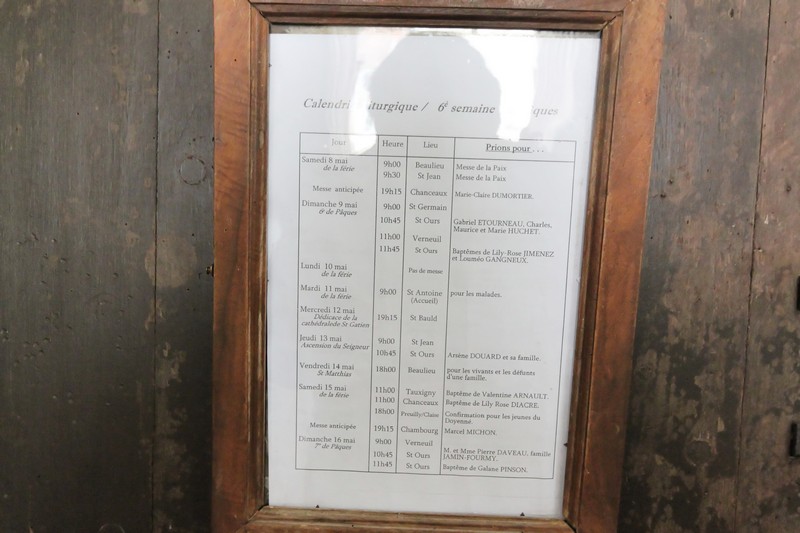 Calendri turgique / 6è semaine ques
Jour Heure Lieu Prions pour . . .
Samedi 8 mai 9h00 Beaulieu Messe de la Paix
de la férie 9h30 St Jean Messe de la Paix
Messe anticipée 19h15 Chanceaux Marie-Claire DUMORTIER.
Dimanche 9 mai 9h00 St Germain
6è de Pâques
10h45 St Ours Gabriel ETOURNEAU, Charles,
Maurice et Marie HUCHET.
11h00 Verneuil
11h45 St Ours Baptêmes de Lily-Rose JIMENEZ
et Louméo GANGNEUX.
Lundi 10 mai Pas de messe
de la férie
Mardi 11 mai 9h00 St Antoine pour les malades.
de la férie (Accueil)
Mercredi 12 mai
Dédicace de la 19h15 St Bauld
cathédralede St Gatien
Jeudi 13 mai 9h00 St Jean
Ascension du Seigneur
10h45 St Ours Arsène DOUARD et sa famille.
Vendredi 14 mai 18h00 Beaulieu pour les vivants et les défunts
St Matthias d'une famille.
Samedi 15 mai 11h00 Tauxigny Baptême de Valentine ARNAULT.
de la férie 11h00 Chanceaux Baptême de Lily Rose DIACRE.
18h00 Preuilly/Claise Confirmation pour les jeunes du
Doyenné.
Messe anticipée 19h15 Chambourg Marcel MICHON.
Dimanche 16 mai 9h00 Verneuil
7è de Pâques
10h45 St Ours M. et Mme Pierre DAVEAU; famille
JAMIN-FOURMY.
11h45 St Ours Baptême de Galane PINSON.